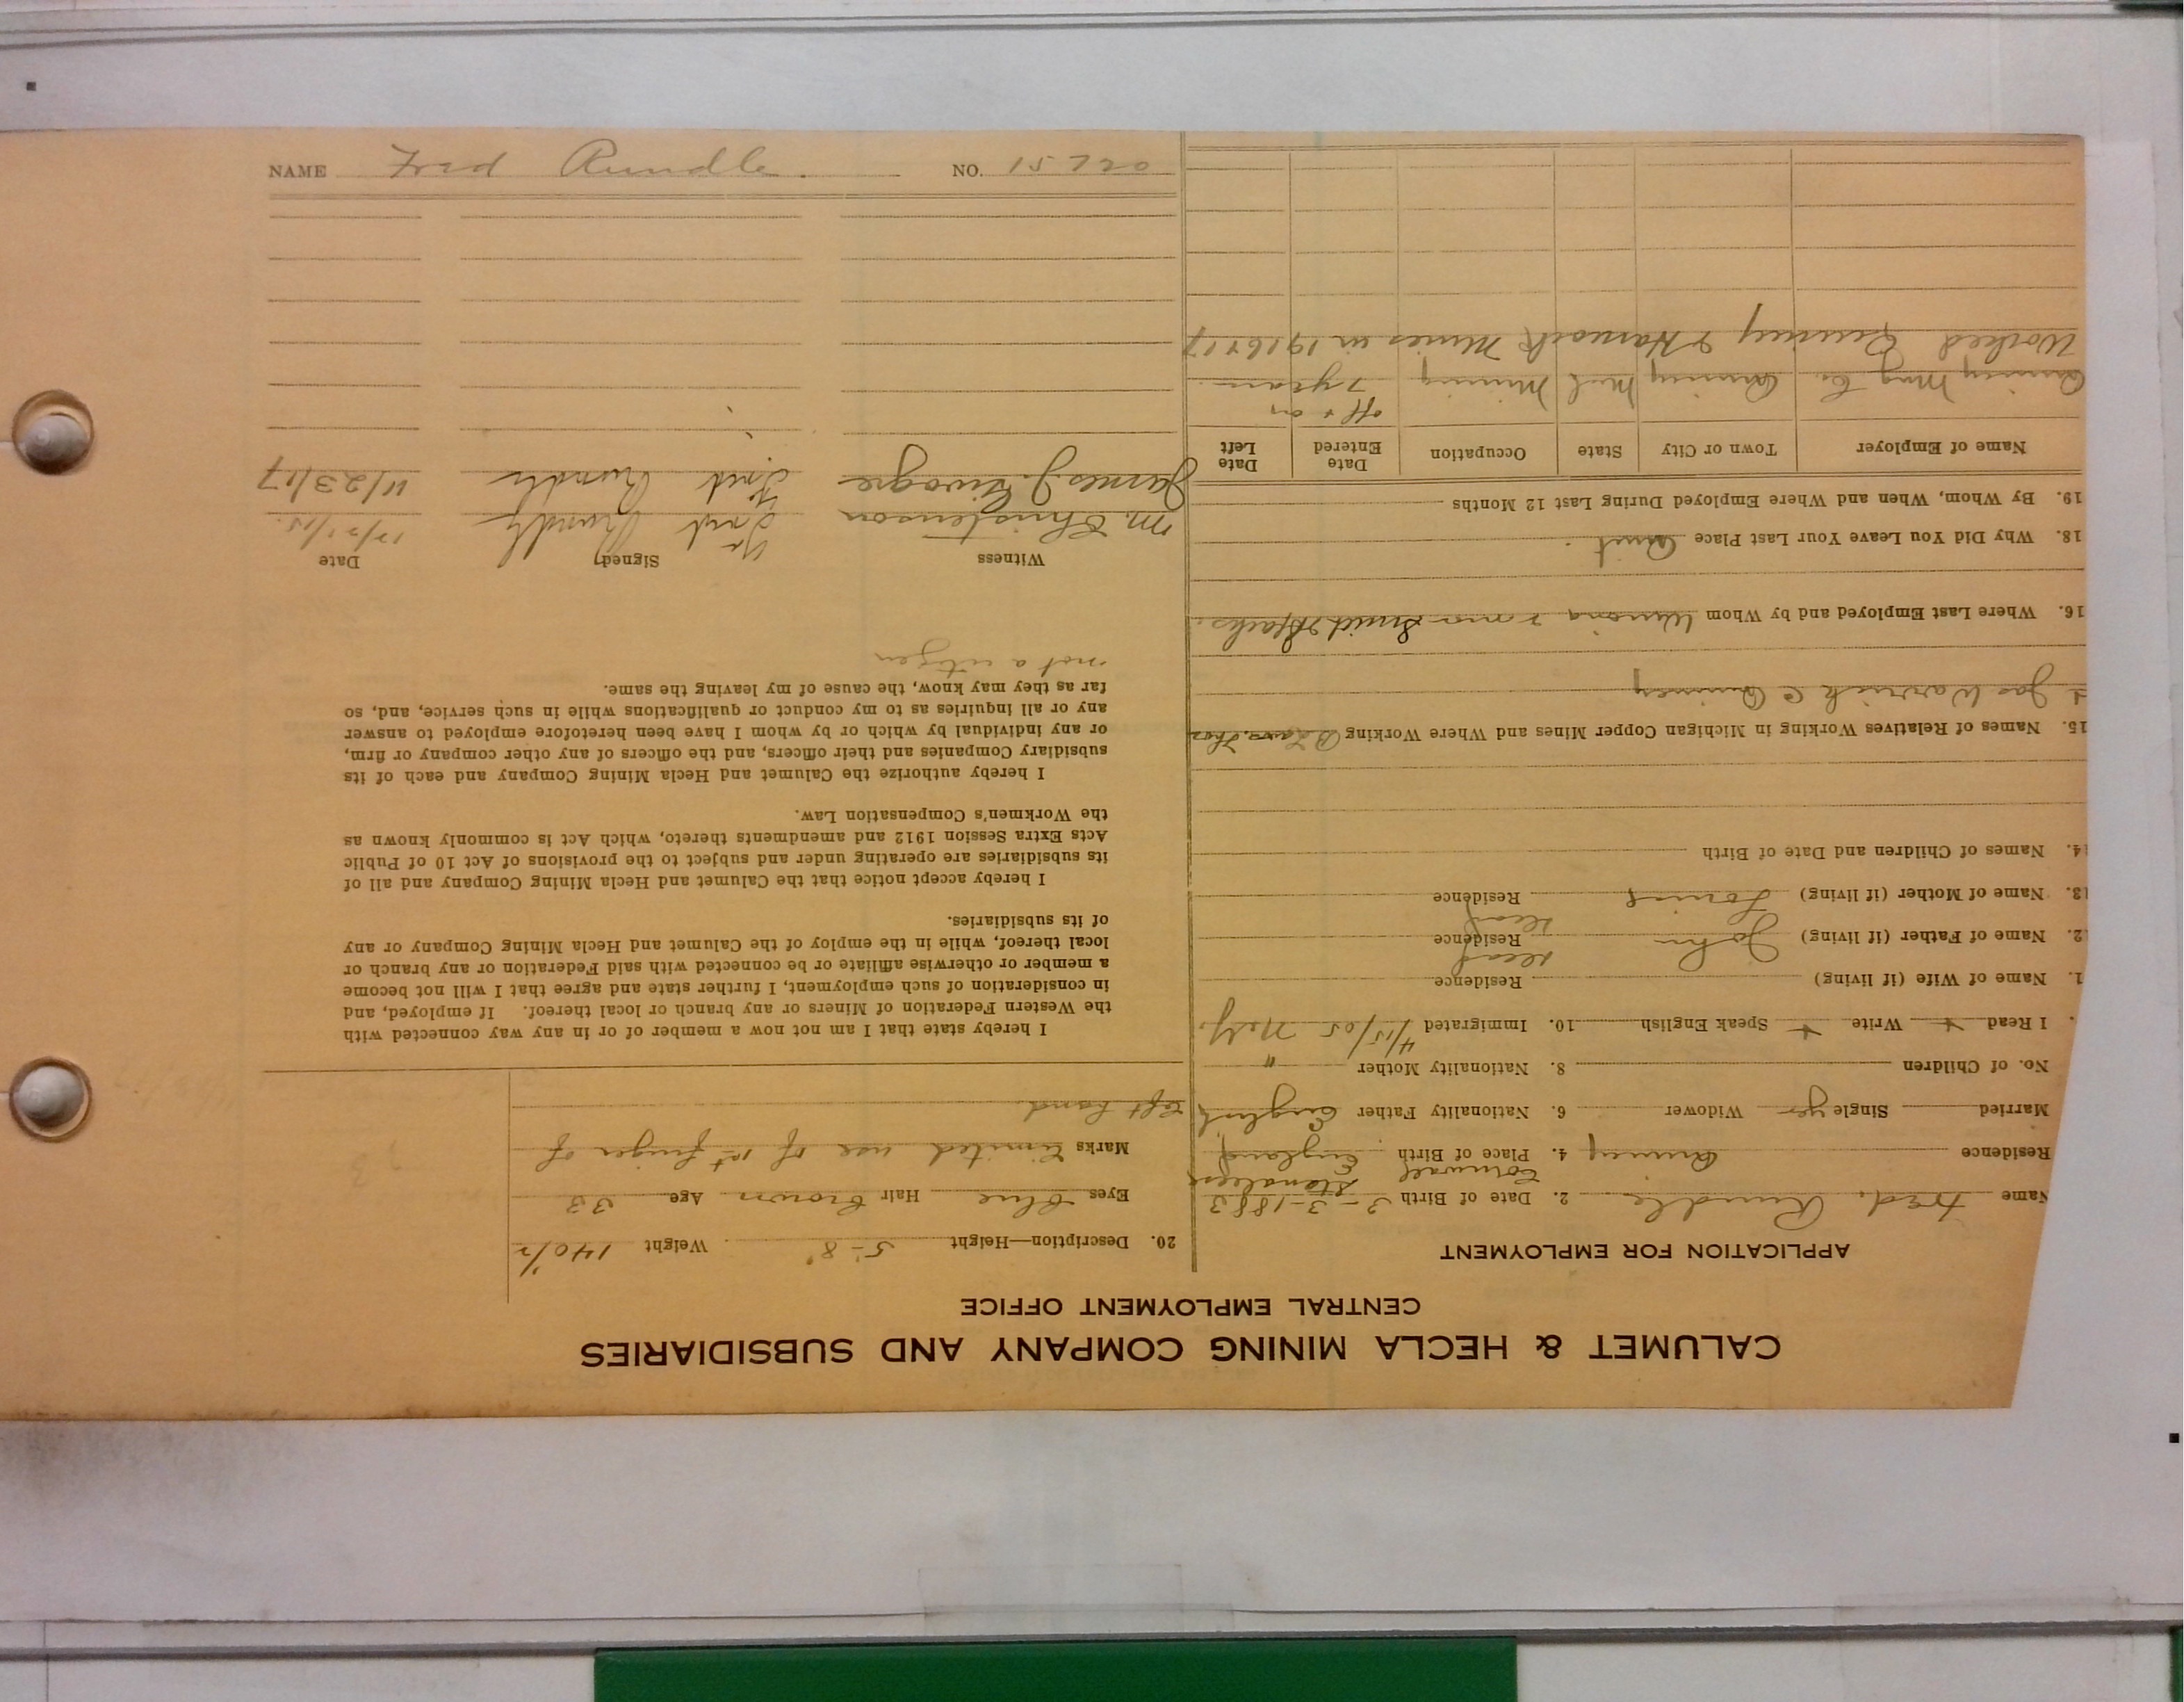 CALUMET & HECLA MINING COMPANY AND SUBSIDIARIES
CENTRAL EMPLOYMENT OFFICE
APPLICATION FOR EMPLOYMENT
Name Fred. Rundle 2. Date of Birth 3-3-1883
Cornwall
Residence Quincy 4. Place of Birth England
Married Single yes Widower 6. Nationality Father English
No. of Children 8. Nationality Mother "
I Read + Write + Speak English 10. Immigrated 4/15/05
1. Name of Wife (if living) Residence
2. Name of Father (if living) John Residence dead
13. Name of Mother (if living) Residence dead
14. Names of Children and Date of Birth
15. Names of Relatives Working in Michigan Copper Mines and Where Working
+ Jas Warrick @ Quincy
16. Where Last Employed and by Whom
18. Why Did You Leave Your Last Place Quit
19. By Whom, When and Where Employed During Last 12 Months
Name of Employer Town or City State Occupation Date Entered Date Left
off + on
Quincy Mng Co. Quincy Mich Mining 7 years
Worked Quincy & Hancock Mines in 1916 + 17
20. Description—Height 5-8" Weight 140 1/2
Eyes blue Hair brown Age 33
Marks Limited use of 1st finger of
left hand.
I hereby state that I am not now a member of or in any way connected with
the Western Federation of Miners or any branch or local thereof. If employed, and
in consideration of such employment, I further state and agree that I will not become
a member or otherwise affiliate or be connected with said Federation or any branch or
local thereof, while in the employ of the Calumet and Hecla Mining Company or any
of its subsidiaries.
I hereby accept notice that the Calumet and Hecla Mining Company and all of
its subsidiaries are operating under and subject to the provisions of Act 10 of Public
Acts Extra Session 1912 and amendments thereto, which Act is commonly known as
the Workmen's Compensation Law.
I hereby authorize the Calumet and Hecla Mining Company and each of its
subsidiary Companies and their officers, and the officers of any other company or firm,
or any individual by which or by whom I have been heretofore employed to answer
any or all inquiries as to my conduct or qualifications while in such service, and, so
far as they may know, the cause of my leaving the same.
not a citizen
Witness Signed Date
M. Christenson Fred Rundle
James J. Fred Rundle 11/23/17
NAME Fred Rundle. NO. 15720